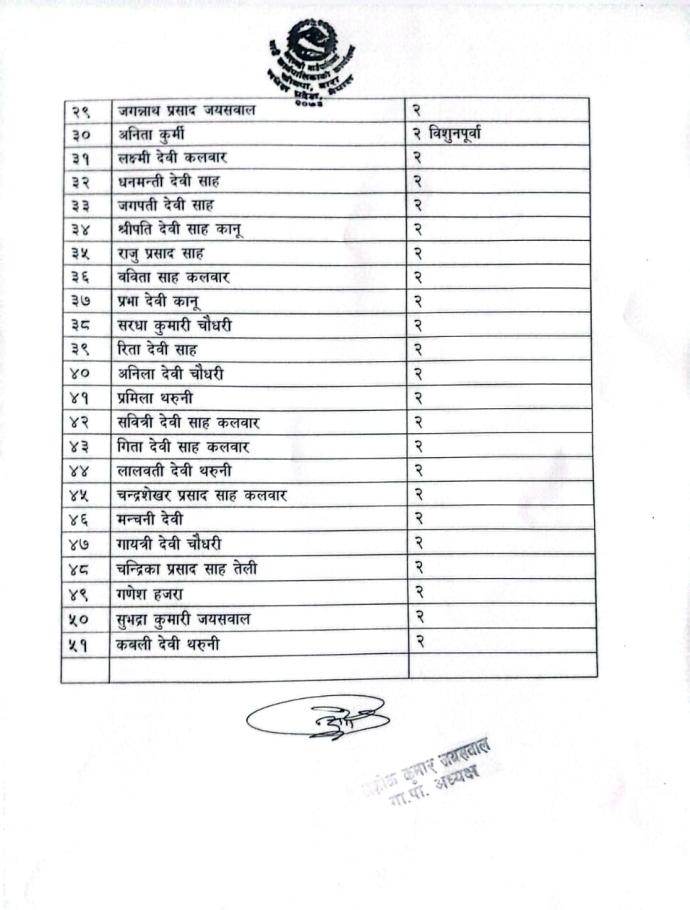 गाउँ कार्यपालिकाको कार्यालय
बारा
मधेश प्रदेश, नेपाल
२०७३
२९ जगन्नाथ प्रसाद जयसवाल २
३० अनिता कुर्मी २ विशुनपूर्वा
३१ लक्ष्मी देवी कलवार २
३२ धनमन्ती देवी साह २
३३ जगपती देवी साह २
३४ श्रीपति देवी साह कानू २
३५ राजु प्रसाद साह २
३६ वविता साह कलवार २
३७ प्रभा देवी कानू २
३८ सरधा कुमारी चौधरी २
३९ रिता देवी साह २
४० अनिला देवी चौधरी २
४१ प्रमिला थरुनी २
४२ सवित्री देवी साह कलवार २
४३ गिता देवी साह कलवार २
४४ लालवती देवी थरुनी २
४५ चन्द्रशेखर प्रसाद साह कलवार २
४६ मन्चनी देवी २
४७ गायत्री देवी चौधरी २
४८ चन्द्रिका प्रसाद साह तेली २
४९ गणेश हजरा २
५० सुभद्रा कुमारी जयसवाल २
५१ कबली देवी थरुनी २
कुमार जयसवाल
गा.पा. अध्यक्ष